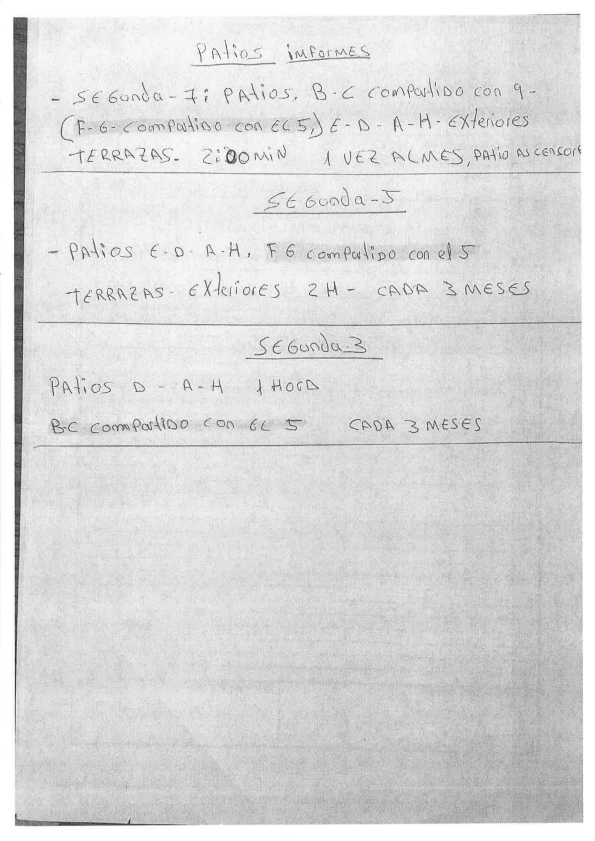 PAtios imformes
- SEGunda-7: PAtios. B-C compartiDO con 9-
(F-G-compartiDo con EL 5,) E-D-A-H-EXteriores
TERRAZAS- 2:00 MiN 1 VEZ AL MES, PAtio AScensor
SEGunda-5
- PAtios E-D-A-H, F G compartiDo con el 5
TERRAZAS- EXteriores 2H - CADA 3 MESES
SEGunda-3
PAtios D - A-H 1 HORA
B-C compartiDO con EL 5 CADA 3 MESES